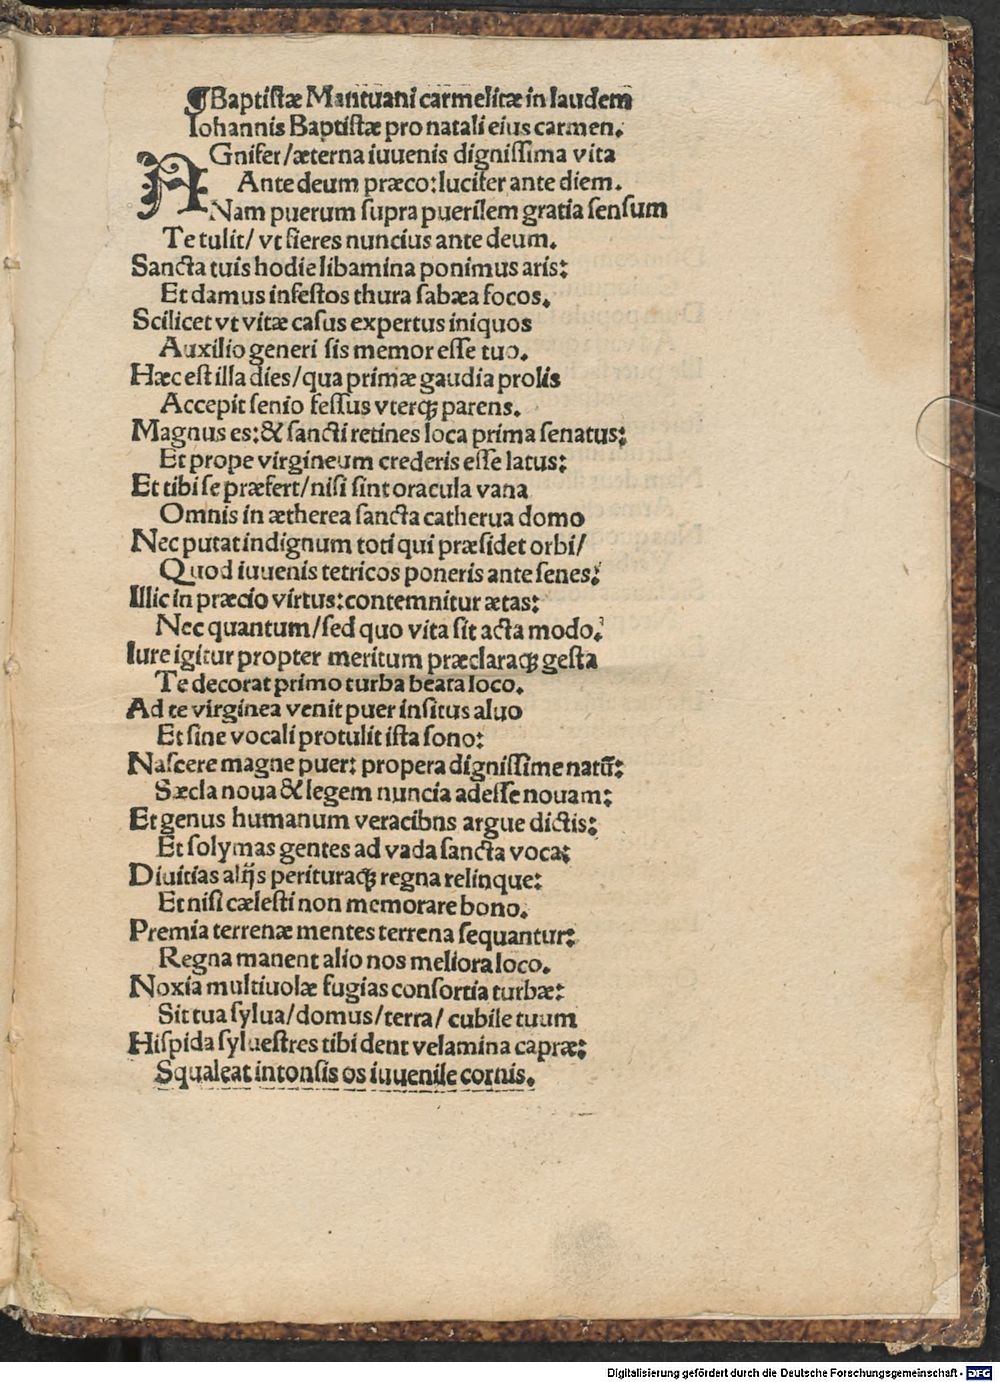 ¶Baptistæ Mantuani carmelitæ in laudem
Iohannis Baptistæ pro natali eius carmen.
AGnifer/æterna iuuenis dignissima vita
Ante deum præco:lucifer ante diem.
Nam puerum supra puerilem gratia sensum
Te tulit/ vt fieres nuncius ante deum.
Sancta tuis hodie libamina ponimus aris:
Et damus infestos thura sabæa focos.
Scilicet vt vitæ casus expertus iniquos
Auxilio generi sis memor esse tuo.
Hæc est illa dies/qua primæ gaudia prolis
Accepit senio fessus vterqꝫ parens.
Magnus es:& sancti retines loca prima senatus:
Et prope virgineum crederis esse latus:
Et tibi se præfert/nisi sint oracula vana
Omnis in ætherea sancta catherua domo
Nec putat indignum toti qui præsidet orbi/
Quod iuuenis tetricos poneris ante senes:
Illic in præcio virtus:contemnitur ætas:
Nec quantum/sed quo vita sit acta modo.
Iure igitur propter meritum præclaraqꝫ gesta
Te decorat primo turba beata loco.
Ad te virginea venit puer insitus aluo
Et sine vocali protulit ista sono:
Nascere magne puer: propera dignissime natū:
Sæcla noua & legem nuncia adesse nouam:
Et genus humanum veracibns argue dictis:
Et solymas gentes ad vada sancta voca:
Diuitias alijs perituraqꝫ regna relinque:
Et nisi cælesti non memorare bono.
Premia terrenæ mentes terrena sequantur:
Regna manent alio nos meliora loco.
Noxia multiuolæ fugias consortia turbæ:
Sit tua sylua/domus/terra/ cubile tuum
Hispida syluestres tibi dent velamina capræ:
Squaleat intonsis os iuuenile comis.
Digitalisierung gefördert durch die Deutsche Forschungsgemeinschaft - DFG